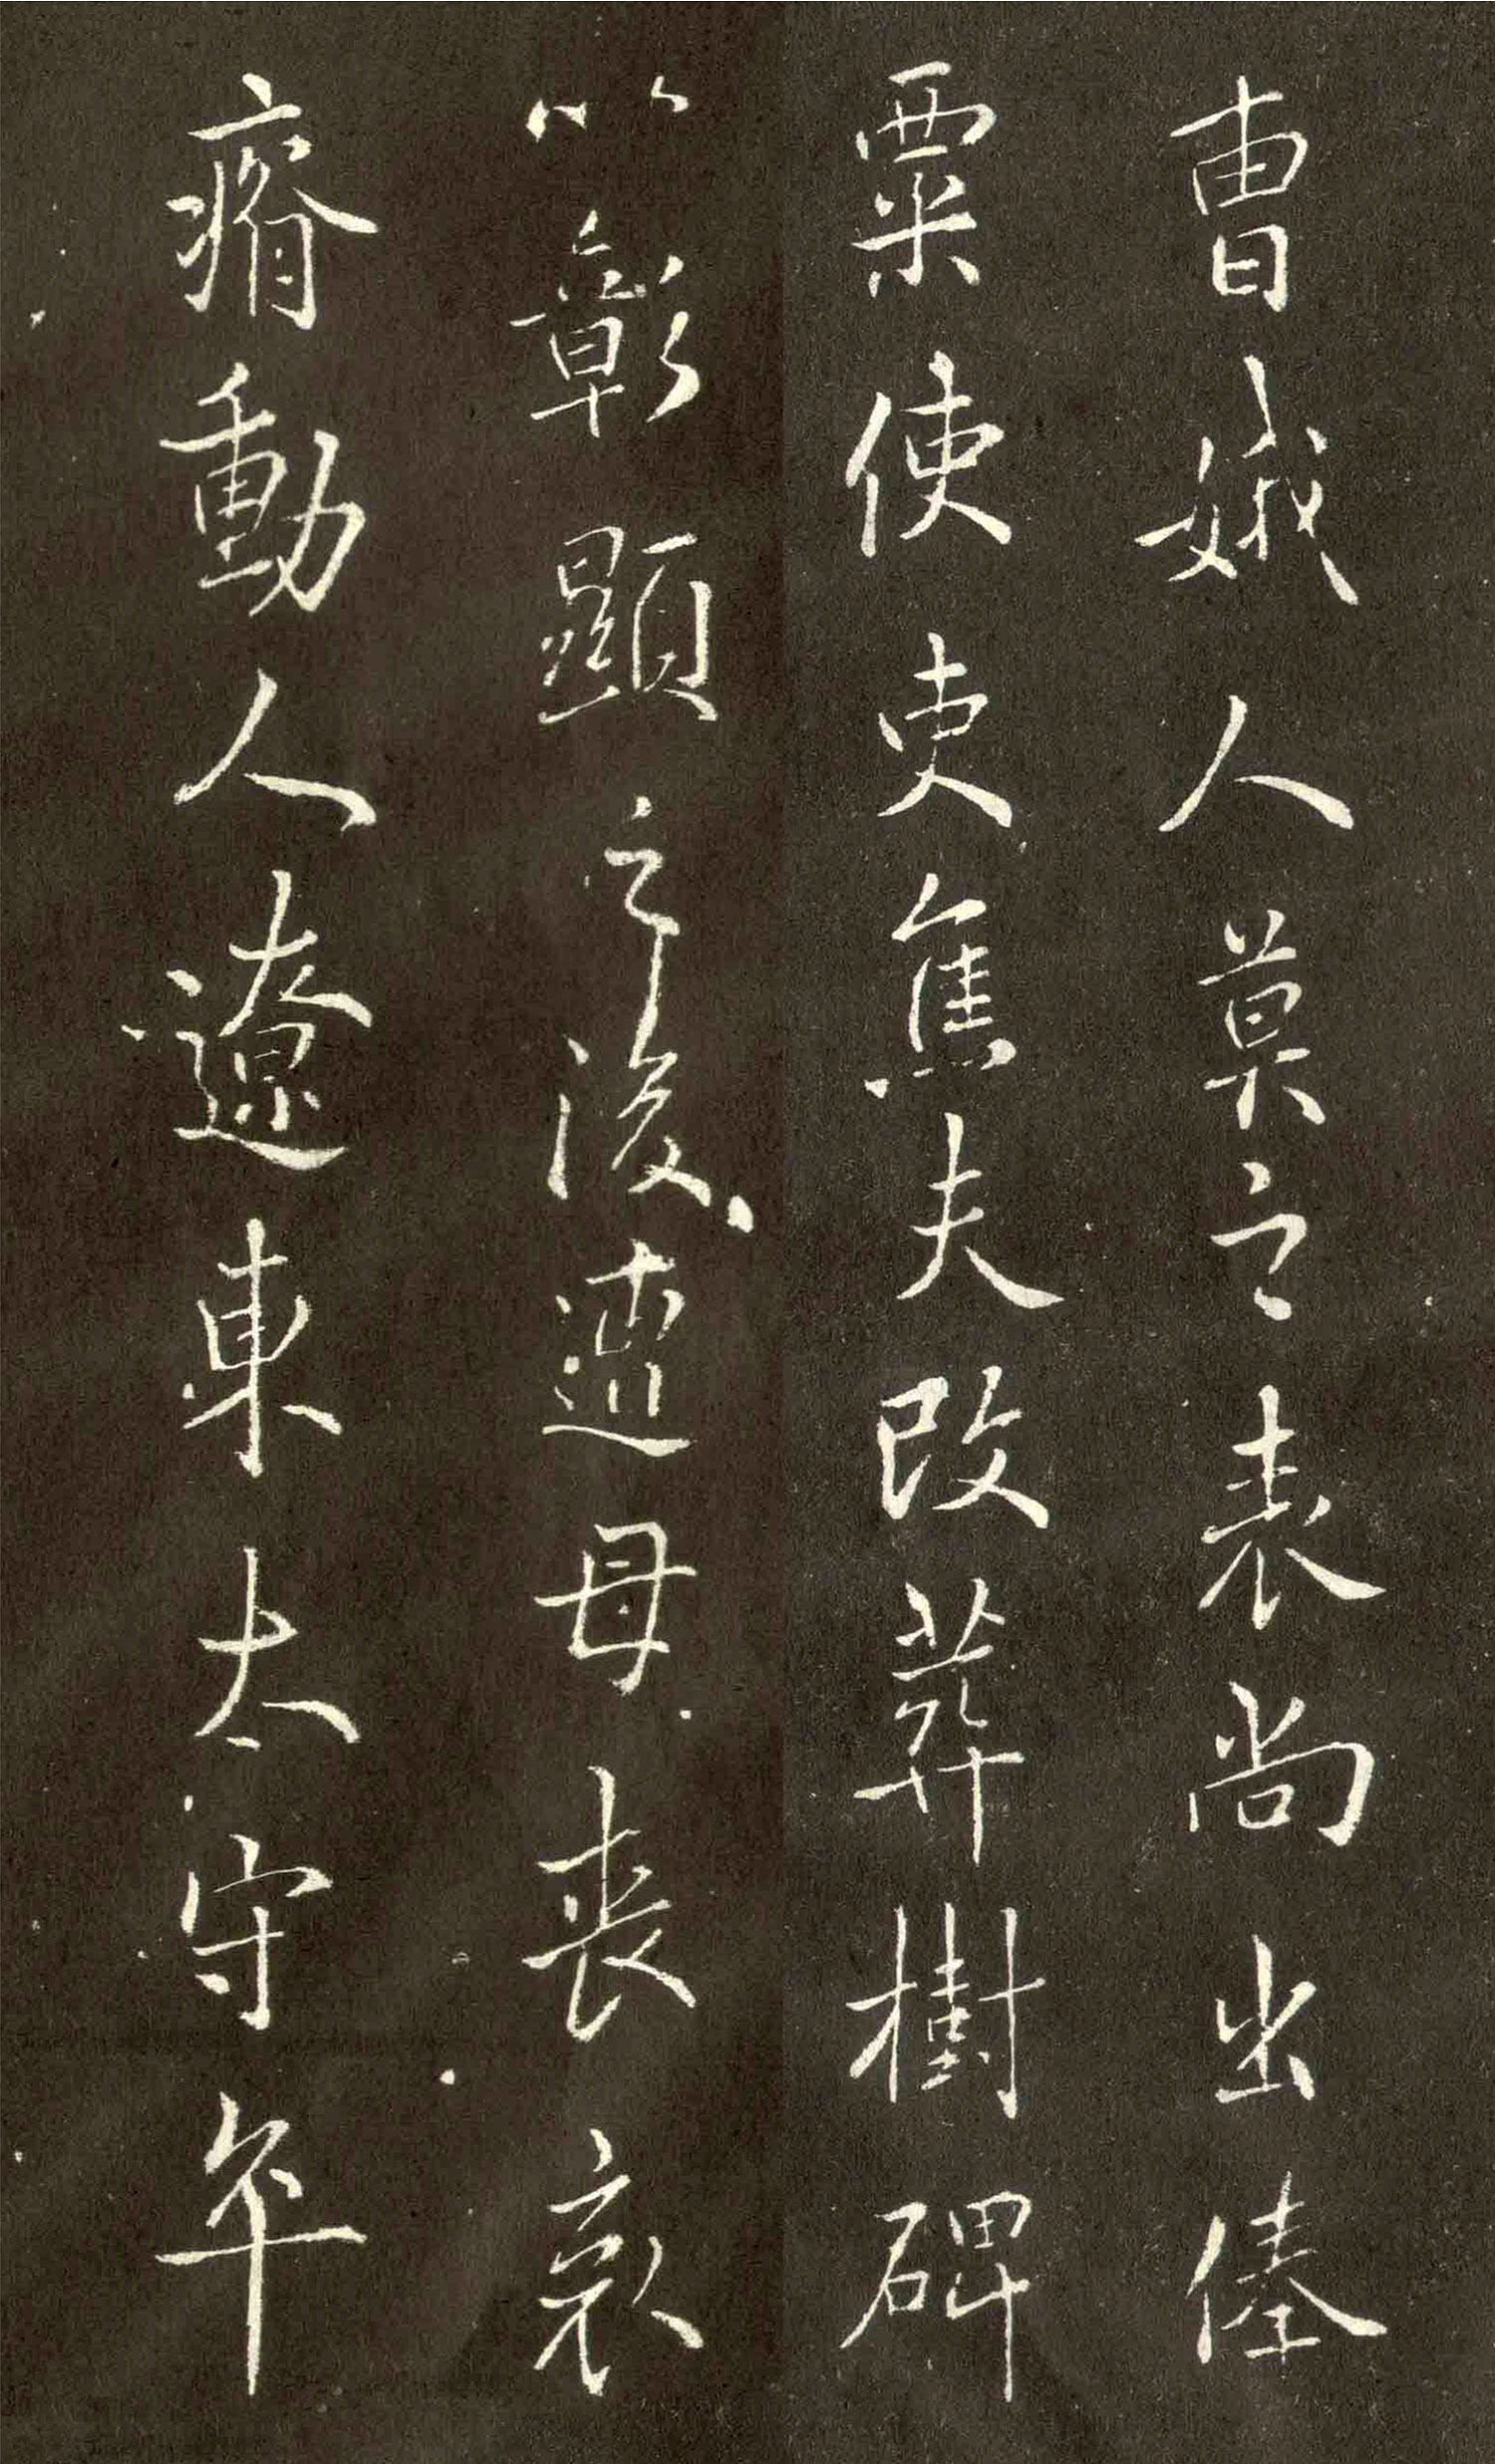 曹娥人莫之表尚出俸
粟使吏焦夫改葬樹碑
以彰顯之後遭母喪哀
瘠動人遼東太守年